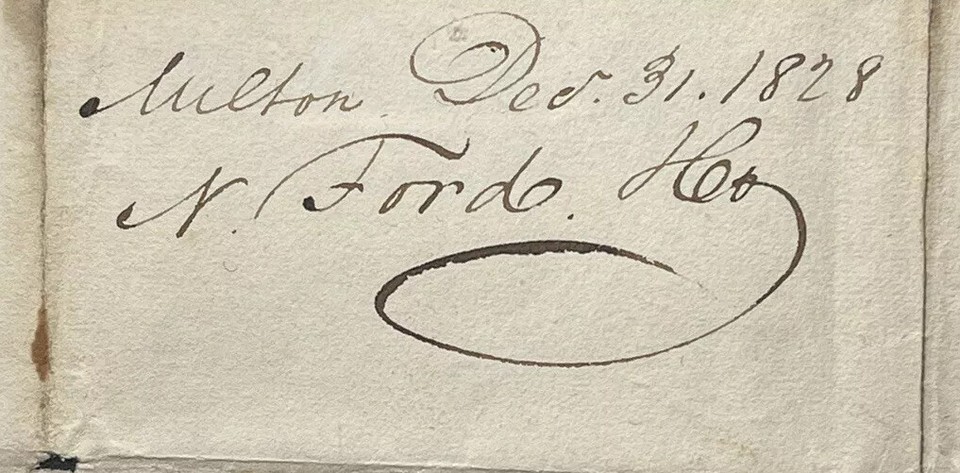 Milton Dec. 31. 1828
N. Ford.